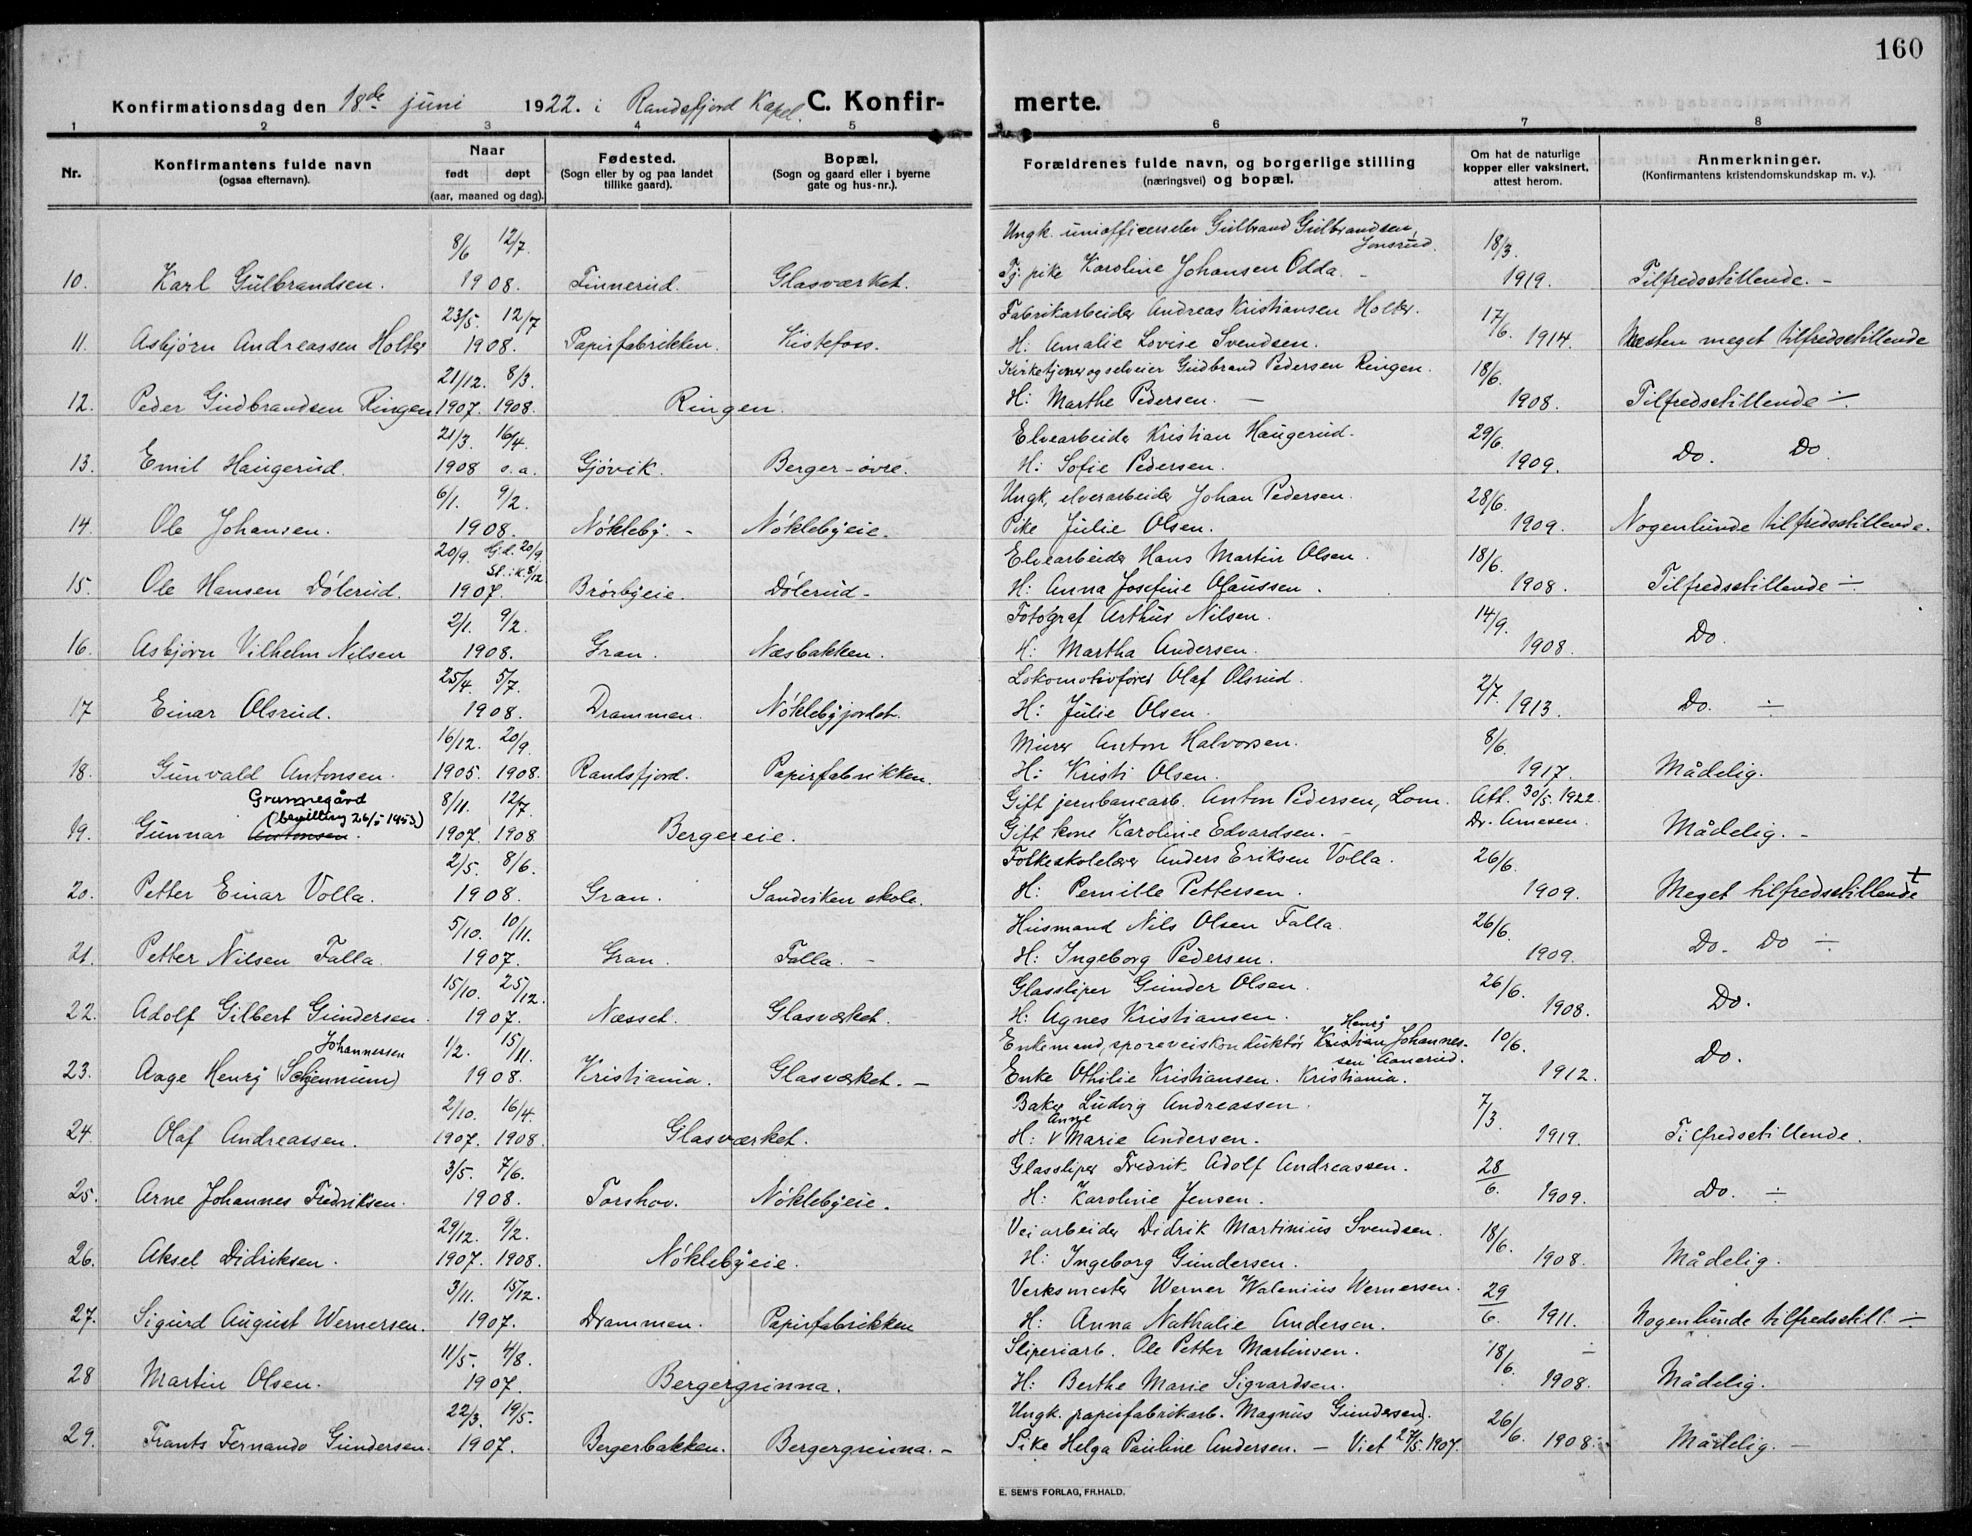 160
Konfirmationsdag den 18de juni 1922. i Randsfjord Kapel. C. Konfir- merte.
1 2 3 4 5 6 7 8
Nr. Konfirmantens fulde navn (ogsaa efternavn). Naar født døpt (aar, maaned og dag). Fødested. (Sogn eller by og paa landet tillike gaard). Bopæl. (Sogn og gaard eller i byerne gate og hus-nr.). Forældrenes fulde navn, og borgerlige stilling (næringsvei) og bopæl. Om hat de naturlige kopper eller vaksinert, attest herom. Anmerkninger. (Konfirmantens kristendomskundskap m. v.).
8/6 12/7. Ungk. underofficerselev Gulbrand Gulbrandsen, Jonsrud. 18/3.
10. Karl Gulbrandsen. 1908. Finnerud. Glasværket. Tj. pike Karoline Johansen Odda. - 1919. Tilfredsstillende. -
23/5. 12/7 Fabrikarbeider Andreas Kristiansen Holter. 17/6.
11. Asbjørn Andreassen Holter 1908. Papirfabrikken. Kistefoss. H: Amalie Lovise Svendsen. 1914. Næsten meget tilfredsstillende
21/12. 8/3. Kirketjener og selveier Gudbrand Pedersen Ringen. 18/6.
12. Peder Gudbrandsen Ringen 1907. 1908. Ringen. H: Marthe Pedersen. - 1908. Tilfredsstillende ÷
21/3. 16/4. Elvearbeider Kristian Haugerud. 29/6.
13. Emil Haugerud. 1908 o.a. Gjøvik. Berger-øvre. H: Sofie Pedersen. 1909. Do. Do.
6/1. 9/2. Ungk. elvearbeider Johan Pedersen. 28/6.
14. Ole Johansen. 1908. Nøkleby. - Nøklebyeie. Pike Julie Olsen. 1909. Nogenlunde tilfredsstillende.
20/9. Gj.d. 20/9. St. i k. 8/12 Elvearbeider Hans Martin Olsen. 18/6.
15. Ole Hansen Dølerud. 1907. Brørbyeie. Dølerud- H: Anna Josefine Olaussen. 1908. Tilfredsstillende ÷
2/1. 9/2. Fotograf Arthur Nilsen. 14/9.
16. Asbjørn Vilhelm Nilsen 1908. Gran. Næsbakken. H: Martha Andersen. 1908. Do.
25/4. 5/7. Lokomotivfører Olaf Olsrud. 2/7.
17 Einar Olsrud. 1908. Drammen. Nøklebyjordet. H: Julie Olsen. 1913. Do. ÷
16/12. 20/9. Murer Anton Halvorsen. 8/6.
18. Gunvald Antonsen. 1905. 1908. Randsfjord. Papirfabrikken. H: Kristi Olsen. 1917. Mådelig.
Grunnegård (bevilling 26/5 1953) 8/11. 12/7. Gift jernbanearb. Anton Pedersen, Lom. Att. 30/5. 1922.
19. Gunnar Antonsen. 1907. 1908 Bergereie. Gift kone Karoline Edvardsen. - Dr. Arnesen. Mådelig. -
2/5. 8/6. Folkeskolelærer Anders Eriksen Volla. 26/6.
20. Petter Einar Volla. 1908. Gran. Sandviken skole. H: Pernille Pettersen. 1909. Meget tilfredsstillende +
5/10. 10/11. Husmand Nils Olsen Falla. 26/6.
21. Petter Nilsen Falla. 1907. Gran. Falla. - H: Ingeborg Pedersen. 1909. Do. Do ÷
15/10. 25/12. Glassliper Gunder Olsen. 26/6.
22. Adolf Gilbert Gundersen. 1907. Næsset. Glasværket. H: Agnes Kristiansen. 1908. Do.
Johannersen 1/2. 15/11. Enkemand, sporveiskonduktør Kristian Henry Johannessen Aanerud. 10/6.
23. Aage Henry (Schjennum) 1908. Kristiania. Glasværket. - Enke Othilie Kristiansen. Kristiania. 1912. Do.
2/10. 16/4. Baker Ludvig Andreassen. 7/3.
24. Olaf Andreassen. 1907. 1908. Glasværket. H: Anne Marie Andersen. 1919. Tilfredsstillende.
3/5. 7/6. Glassliper Fredrik Adolf Andreassen. 28/6.
25. Arne Johannes Fredriksen. 1908. Torshov. Nøklebyeie. H: Karoline Jensen. 1909. Do. ÷
29/12. 9/2. Veiarbeider Didrik Martinius Svendsen. 18/6.
26. Aksel Didriksen. 1907. 1908. Nøklebyeie. H: Ingeborg Gundersen. 1908. Mådelig.
3/11. 15/12. Verksmester Werner Walenius Wernersen. 29/6.
27. Sigurd August Wernersen. 1907. Drammen. Papirfabrikken H: Anna Nathalie Andersen. 1911. Nogenlunde tilfredsstill. ÷
11/5. 4/8. Sliperiarb. Ole Petter Martinsen. 18/6. -
28 Martin Olsen. 1907. Bergergrinna. H: Berthe Marie Sigvardsen. 1908. Mådelig.
22/3. 19/5. Ungk. papirfabrikarb. Magnus Gundersen). 26/6.
29. Frants Fernando Gundersen. 1907. Bergerbakken. Bergergrinna. - Pike Helga Pauline Andersen. - Viet 27/5. 1907. 1908. Mådelig. -
E. SEM'S FORLAG, FR.HALD.